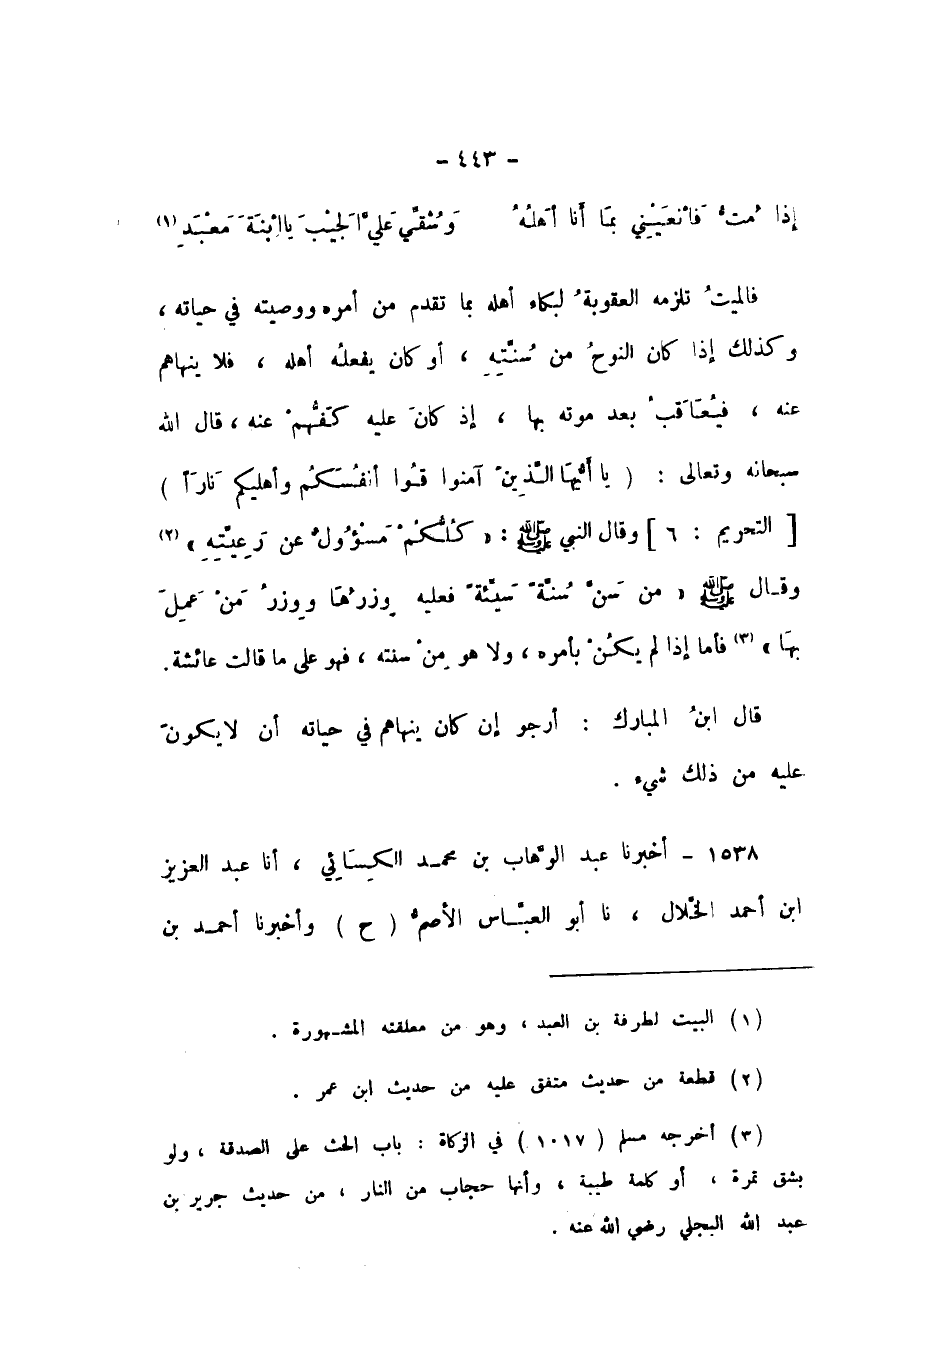 - ٤٤٣ -
إِذا مُتُّ فَانْعَيْنِي بمَا أَنا أَهلُهُ وَشُقِّي عَليَّ الجَيْبَ يا ابْنَةَ مَعْبَدِ (١)
فالميتُ تلزمه العقوبةُ لبكاء أهله بما تقدم من أمره ووصيته في حياته ،
وكذلك إذا كان النوحُ من سُنَّتِهِ ، أو كان يفعلُه أهله ، فلا ينهاهم
عنه ، فيُعَاقبُ بعد موته بها ، إذ كانَ عليه كَفُّهمْ عنه ، قال الله
سبحانه وتعالى : ( يا أَيُّهَا الَّذِينَ آمنوا قُوا أنفُسَكُم وأهليكم نَاراً )
[ التحريم : ٦ ] وقال النبي ﷺ : « كُلُّكُمْ مَسْؤُولٌ عن رَعِيَّتِهِ » (٢)
وقـال ﷺ « من سَنَّ سُنَّةً سَيِّئةً فعليه وِزرُهَا ووِزرُ مَنْ عَمِلَ
بهَا » (٣) فأما إذا لم يكُنْ بأمره ، ولا هو مِنْ سنته ، فهو على ما قالت عائشة.
قال ابنُ المبارك : أرجو إن كان ينهاهم في حياته أن لايكونَ
عليه من ذلك شيء .
١٥٣٨ - أخبرنا عبد الوهَّاب بن محمـد الكِسَائي ، أنا عبد العزيز
ابن أحمد الخلَّال ، نا أبو العبَّـاس الأصمُّ ( ح ) وأخبرنا أحمـد بن
(١) البيت لطرفة بن العبد ، وهو من معلقته المشـهورة .
(٢) قطعة من حديث متفق عليه من حديث ابن عمر .
(٣) أخرجه مسلم ( ١٠١٧ ) في الزكاة : باب الحث على الصدقة ، ولو
بشق تمرة ، أو كلمة طيبة ، وأنها حجاب من النار ، من حديث جرير بن
عبد الله البجلي رضي الله عنه .